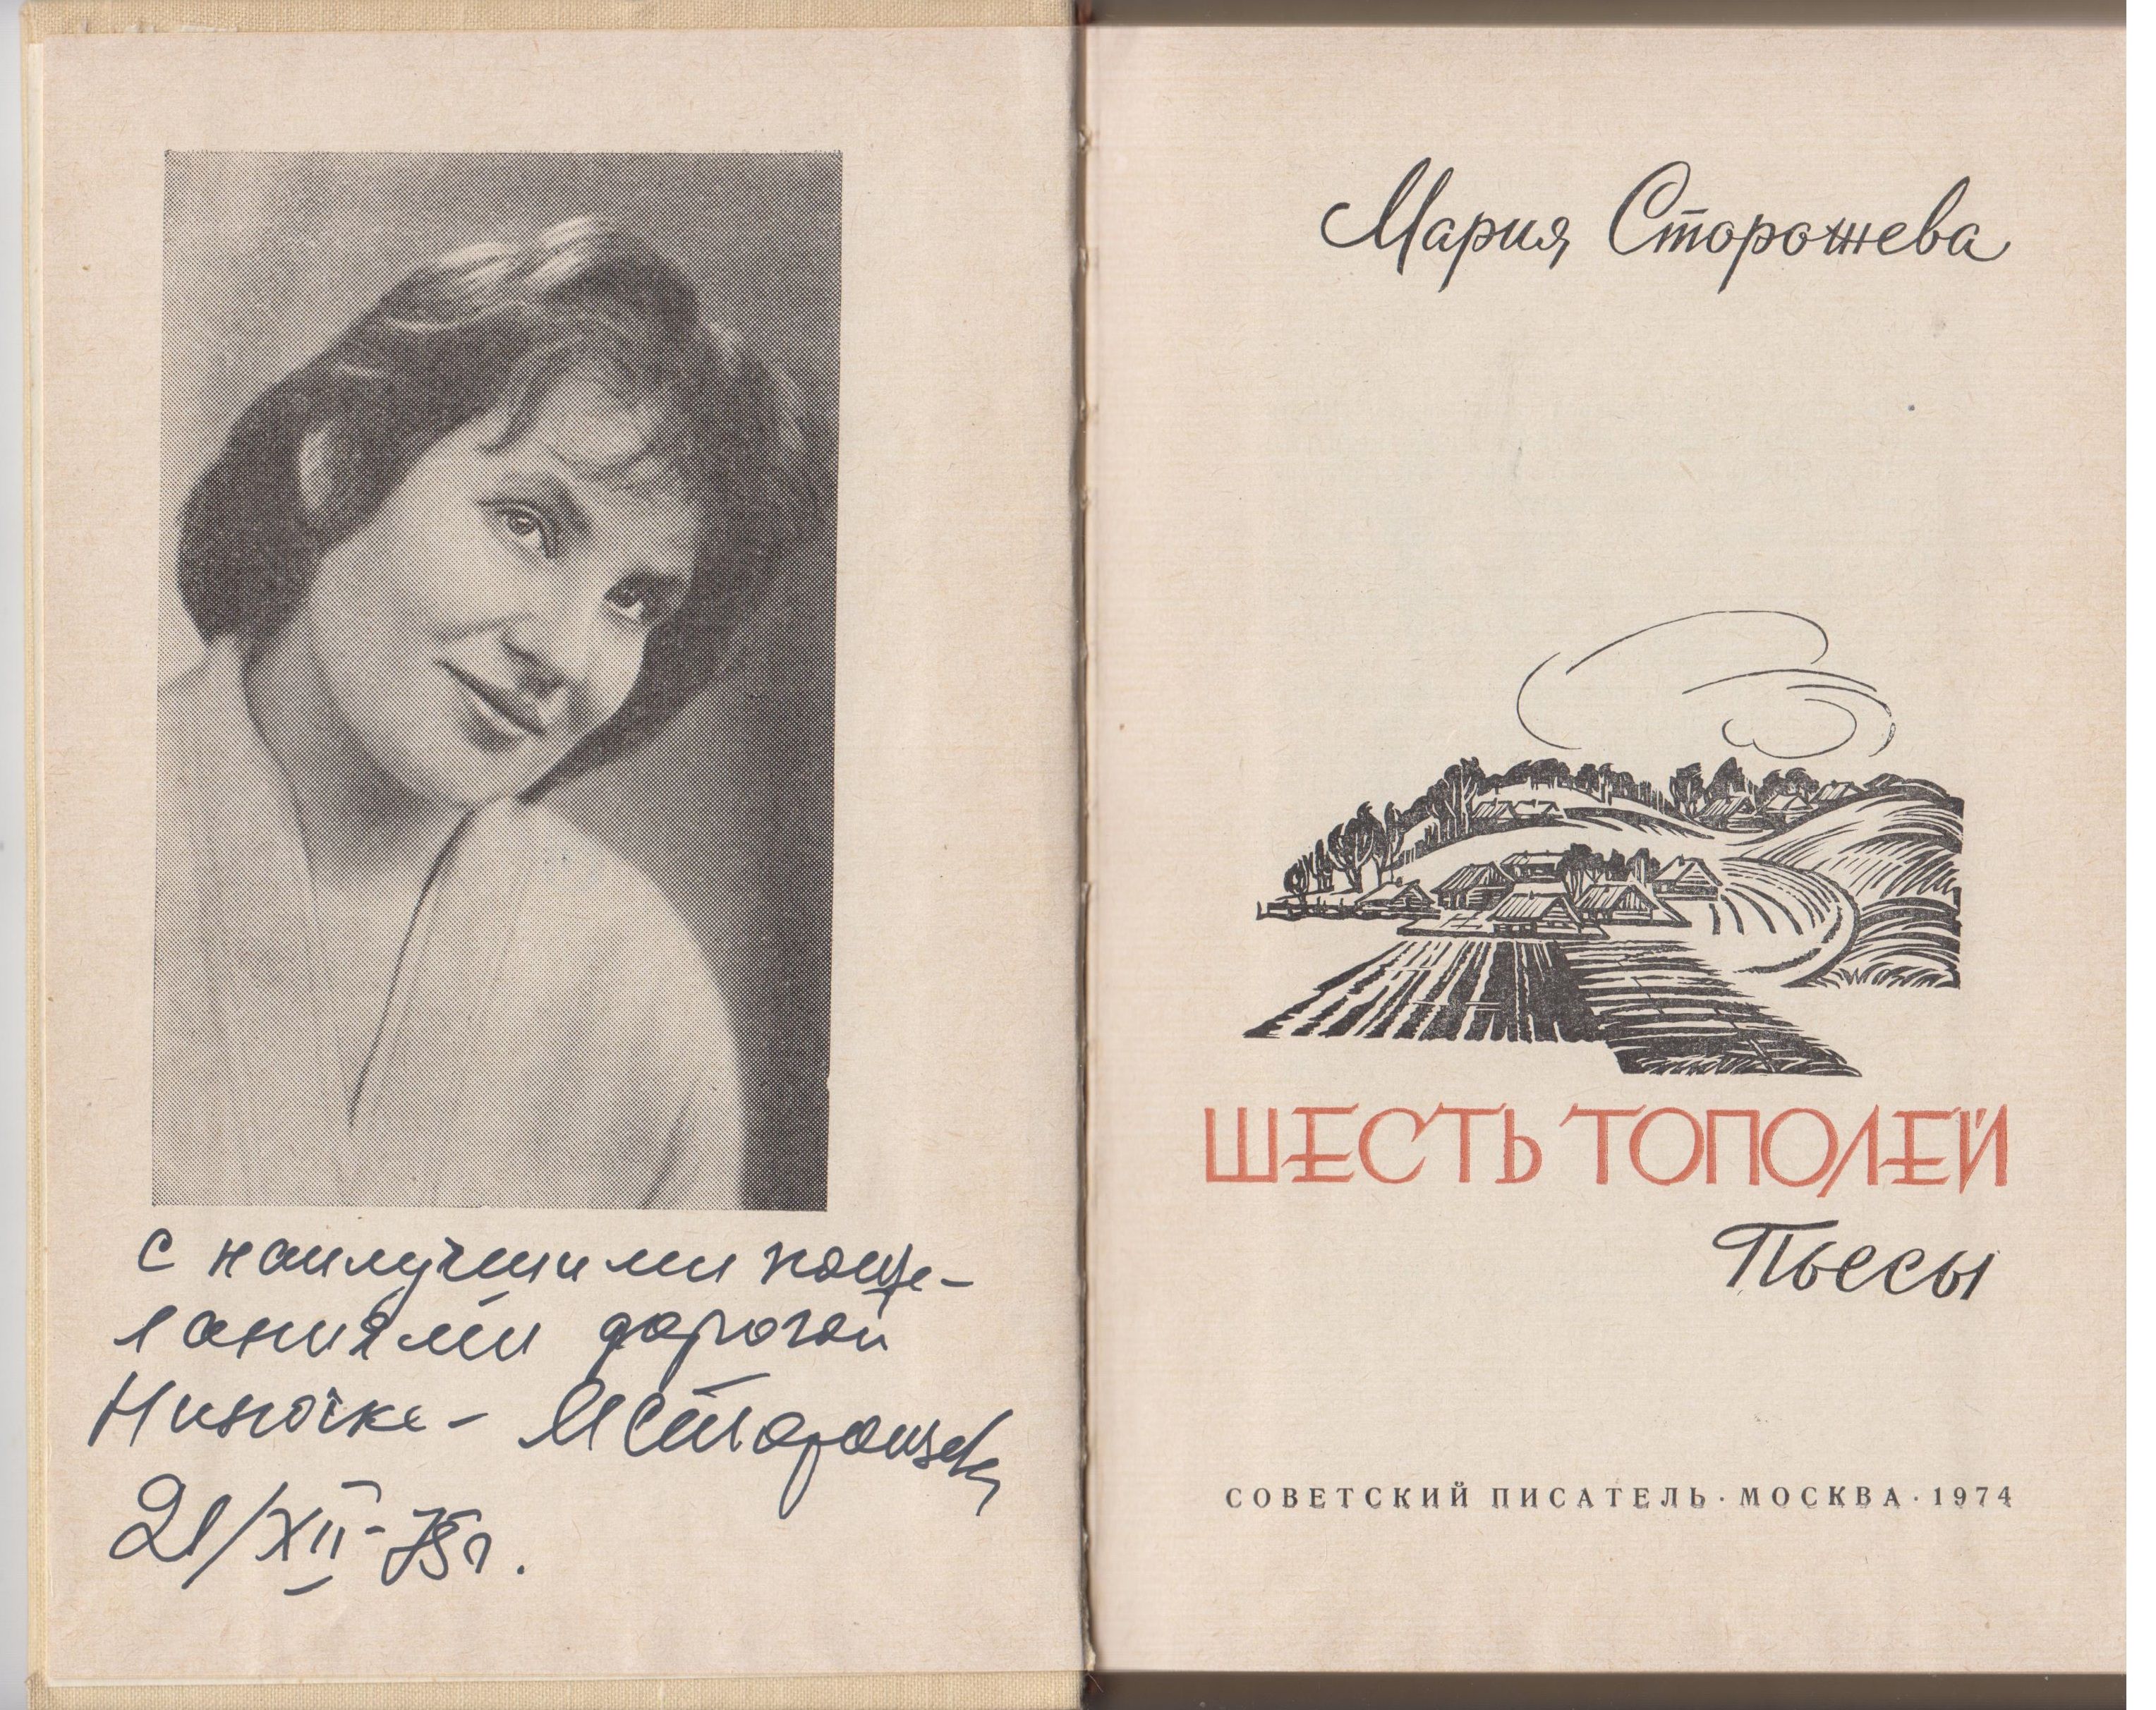 с наилучшими поже-
ланиями дорогой
Ниночке - МСторожева
21/XII-75г.
Мария Сторожева
ШЕСТЬ ТОПОЛЕЙ
Пьесы
СОВЕТСКИЙ ПИСАТЕЛЬ · МОСКВА · 1974